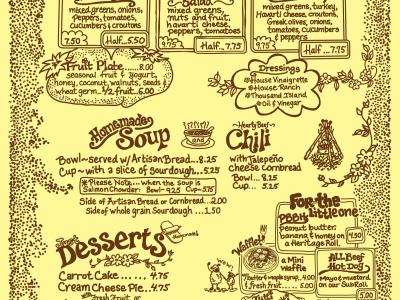 mixed greens, onions,
peppers, tomatoes,
cucumbers & croutons
7.50 Half..5.50
Salad
mixed greens,
nuts and fruit,
havarti cheese,
peppers, tomatoes
9.75 Half..7.75
mixed greens, turkey,
Havarti cheese, croutons,
Greek olives, onions,
tomatoes, cucumbers
& peppers
9.75 Half..7.75
Fruit Plate.....8.00
seasonal fruit & yogurt,
honey, coconut, walnuts, seeds &
wheat germ...1/2 fruit..6.00
Dressings
House Vinaigrette
House Ranch
Thousand Island
Oil & Vinegar
Homemade
Soup
Bowl~served w/Artisan Bread...8.25
Cup~with a slice of Sourdough...5.25
*Please Note....when the soup is
Salmon Chowder: Bowl=9.25 Cup=5.75
Side of Artisan Bread or Cornbread...2.00
Side of whole grain Sourdough...1.50
~Hearty Beef~
Chili
with Jalapeño
cheese Cornbread
Bowl...8.25
Cup....5.25
For the
Little one
PBBH: peanut butter,
banana & honey on
a Heritage Roll. 4.50
Waffle!!
a Mini
waffle
w/butter & maple syrup..4.00
& fresh Fruit......5.00
ALL Beef
Hot Dog
Mayo & mustard
on our Sub Roll
5.00
Desserts
Homemade!
Carrot Cake......4.75
Cream Cheese Pie...4.75
with Fresh Fruit, or